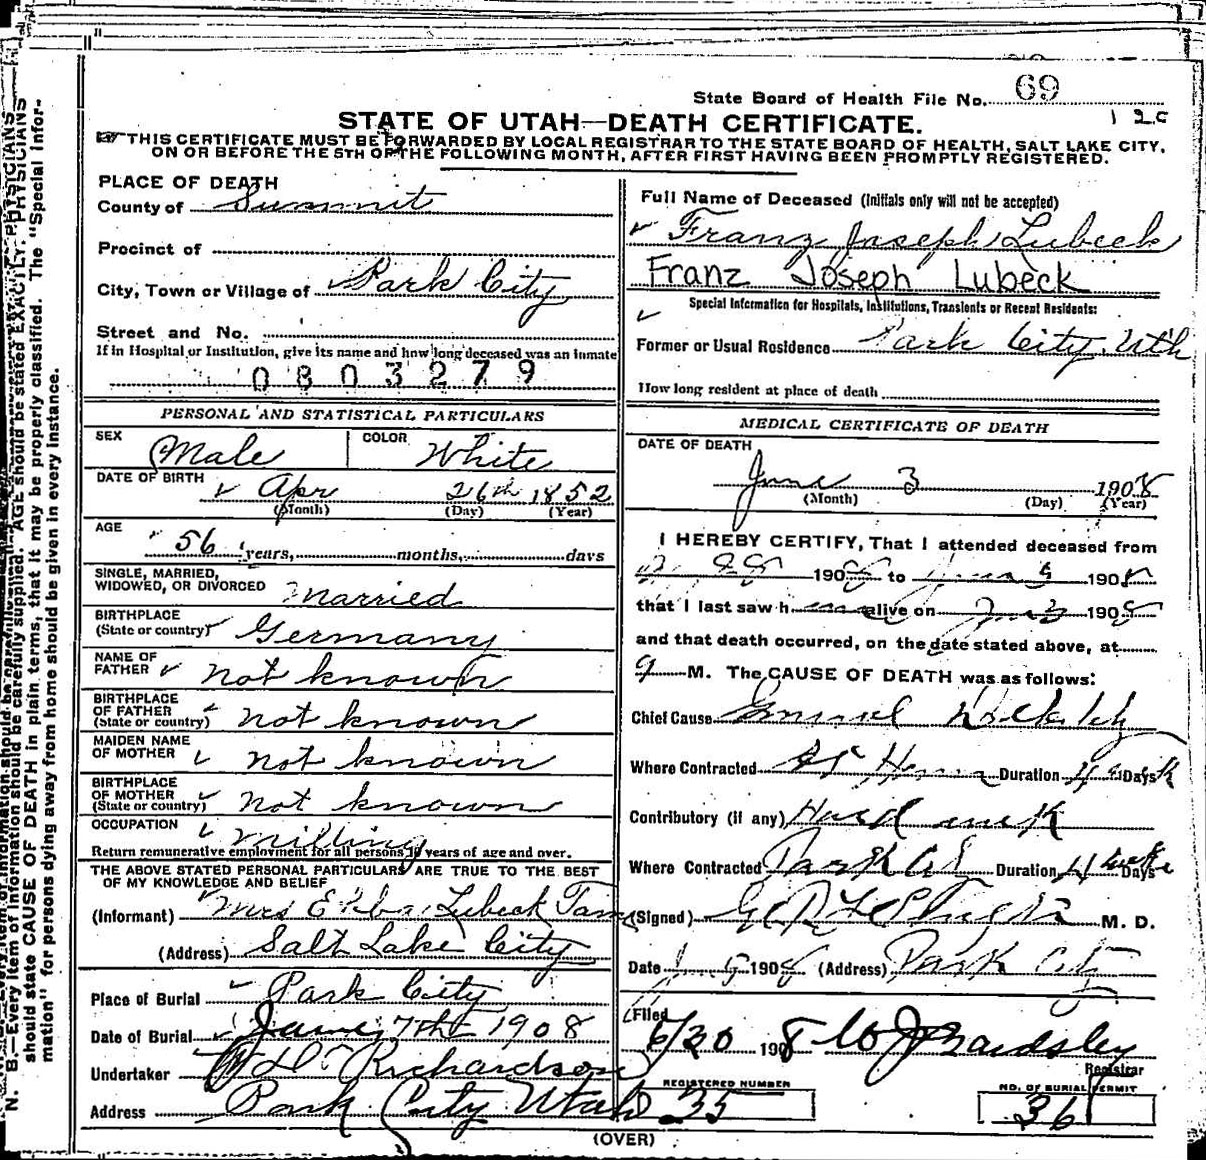 State Board of Health File No. 69
STATE OF UTAH—DEATH CERTIFICATE.
THIS CERTIFICATE MUST BE FORWARDED BY LOCAL REGISTRAR TO THE STATE BOARD OF HEALTH, SALT LAKE CITY,
ON OR BEFORE THE 5TH OF THE FOLLOWING MONTH, AFTER FIRST HAVING BEEN PROMPTLY REGISTERED.
PLACE OF DEATH
County of Summit
Precinct of
City, Town or Village of Park City
Street and No.
If in Hospital or Institution, give its name and how long deceased was an inmate
0803279
PERSONAL AND STATISTICAL PARTICULARS
SEX Male COLOR White
DATE OF BIRTH Apr 26th 1852
(Month) (Day) (Year)
AGE 56 years, months, days
SINGLE, MARRIED,
WIDOWED, OR DIVORCED Married
BIRTHPLACE
(State or country) Germany
NAME OF
FATHER not known
BIRTHPLACE
OF FATHER
(State or country) not known
MAIDEN NAME
OF MOTHER not known
BIRTHPLACE
OF MOTHER
(State or country) not known
OCCUPATION
Return remunerative employment for all persons 10 years of age and over.
THE ABOVE STATED PERSONAL PARTICULARS ARE TRUE TO THE BEST
OF MY KNOWLEDGE AND BELIEF
(Informant) Mrs Lubeck
(Address) Salt Lake City
Place of Burial Park City
Date of Burial June 7th 1908
Undertaker Richardson
Address Park City Utah
Full Name of Deceased (Initials only will not be accepted)
Franz Joseph Lubeck
Franz Joseph Lubeck
Special Information for Hospitals, Institutions, Transients or Recent Residents:
Former or Usual Residence Park City Uth
How long resident at place of death
MEDICAL CERTIFICATE OF DEATH
DATE OF DEATH
June 3 1908
(Month) (Day) (Year)
I HEREBY CERTIFY, That I attended deceased from
1908 to 1908
that I last saw h alive on 1908
and that death occurred, on the date stated above, at
9 M. The CAUSE OF DEATH was as follows:
Chief Cause General
Where Contracted At Home Duration Days
Contributory (if any) Hard work
Where Contracted Park City Duration Days
(Signed) M. D.
Date 1908 (Address) Park City
Filed
6/30 1908 Bardsley
Registrar
REGISTERED NUMBER 35
NO. OF BURIAL PERMIT 36
(OVER)
N. B.—Every item of information should be carefully supplied. AGE should be stated EXACTLY. PHYSICIANS
should state CAUSE OF DEATH in plain terms, that it may be properly classified. The "Special Infor-
mation" for persons dying away from home should be given in every instance.